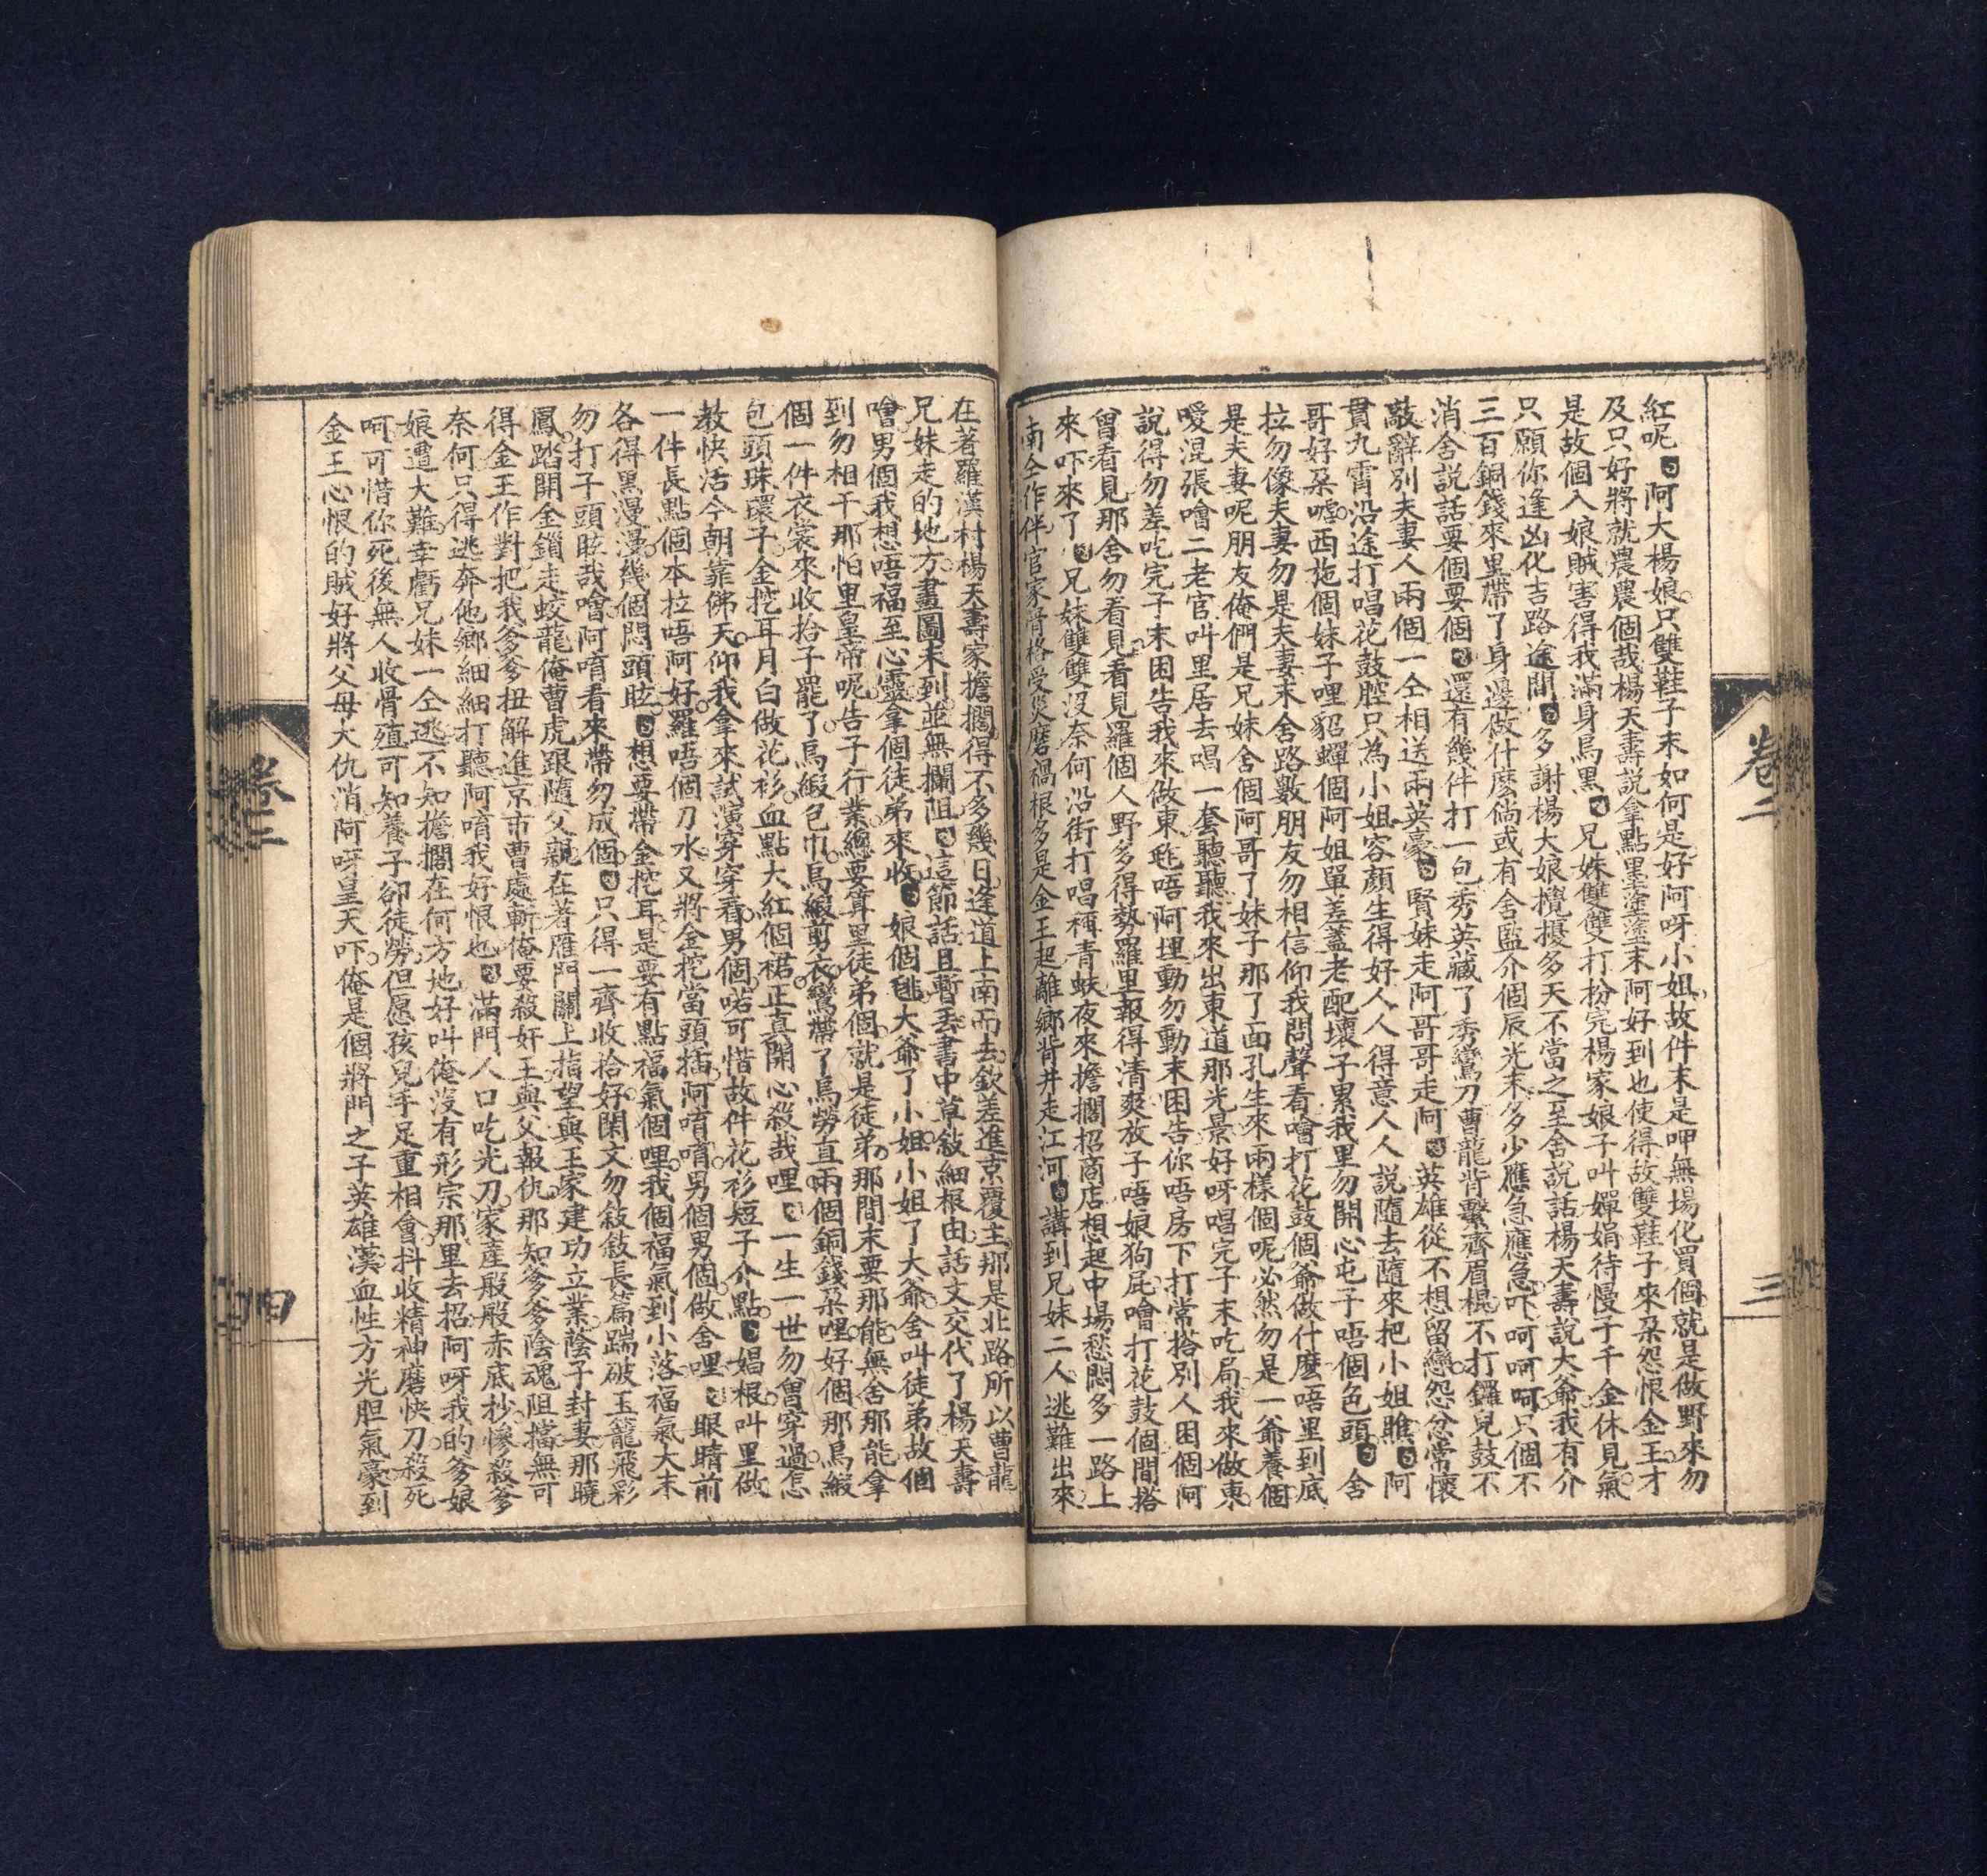 紅呢阿大楊娘只雙鞋子末如何是好阿呀小姐故件末是呷無場化買個就是做野來勿
及只好將就農農個哉楊天壽説拿點黑塗塗末阿好到也使得故雙鞋子來朶怨恨金王才
是故個入娘賊害得我滿身烏黑兄妹雙雙打扮完楊家娘子叫嬋娟待慢子千金休見氣
只願你逢凶化吉路途間多謝楊大娘攪擾多天不當之至舍説話楊天壽説大爺我有介
三百銅錢來里帶了身邊做什麽倘或有舍監介個辰光末多少應急應急吓呵呵呵只個不
消舍説話要個要個還有幾件打一包秀英藏了秀鸞刀曹龍背繫齊眉棍不打鑼兒鼓不
敲辭別夫妻人兩個一仝相送兩英豪賢妹走阿哥哥走阿英雄從不想留戀怨忿常懷
貫九霄沿途打唱花鼓腔只為小姐容顏生得好人人得意人人説隨去隨來把小姐瞧阿
哥好朶噫西施個妹子哩貂蟬個阿姐單差蓋老配壞子累我里勿開心屯子唔個色頭舍
拉勿像夫妻勿是夫妻末舍路數朋友勿相信仰我問聲看噲打花鼓個爺做什麽唔里到底
是夫妻呢朋友俺們是兄妹舍個阿哥了妹子那了面孔生來兩樣個呢必然勿是一爺養個
噯混張噲二老官叫里居去唱一套聽聽我來出東道那光景好呀唱完子末吃局我來做東
說得勿差吃完子末困告我來做東唔阿埋動勿動末困告你唔房下打常搭別人困個阿
曾看見那舍勿看見看見羅個人野多得勢羅里報得清爽放子唔娘狗屁噲打花鼓個間搭
來吓來了兄妹雙雙沒奈何沿街打唱稱青蚨夜來擔擱招商店想起中場愁悶多一路上
南仝作伴官家骨格受災磨禍根多是金王起離鄉背井走江河講到兄妹二人逃難出來
卷二
三
在著羅漢村楊天壽家擔擱得不多幾日逢道上南而去欽差進京覆主那是北路所以曹龍
兄妹走的地方畫圖未到並無攔阻這節話且暫丢書中草敍細根由話文交代了楊天壽
噲男個我想唔福至心靈拿個徒弟來收娘個毴大爺了小姐小姐了大爺舍叫徒弟故個
到勿相干那怕里皇帝呢告子行業總要算里徒弟個就是徒弟那間末要那能無舍那能拿
個一件衣裳來收拾子罷了烏緞包巾烏緞剪衣鸞帶了烏勞直兩個銅錢朶哩好個那烏緞
包頭珠環子金挖耳月白做花衫血點大紅個裙正真開心殺哉哩一生一世勿曾穿過怎
教快活今朝靠佛天仰我拿來試演穿穿看男個喏可惜故件花衫短子介點娼根叫里做
一件長點個本拉唔阿好羅唔個刀水又將金挖當頭插阿唷唷男個男個做舍哩眼睛前
各得黑漫漫幾個悶頭眩想要帶金挖耳是要有點福氣個哩我個福氣到小落福氣大末
勿打子頭眩哉噲阿唷看來帶勿成個只得一齊收拾好閑文勿敍敍長篇踹破玉籠飛彩
鳳踏開金鎖走蛟龍俺曹虎跟隨父親在著雁門關上指望與王家建功立業蔭子封妻那曉
得金王作對把我爹爹扭解進京市曹處斬俺要殺奸王與父報仇那知爹爹陰魂阻擋無可
奈何只得逃奔他鄉細細打聽阿唷我好恨也滿門人口吃光刀家產般般赤底抄慘殺爹
娘遭大難幸虧兄妹一仝逃不知擔擱在何方地好叫俺沒有形宗那里去招阿呀我的爹娘
呵可惜你死後無人收骨殖可知養子卻徒勞但愿孩兒手足重相會抖收精神磨快刀殺死
金王心恨的賊好將父母大仇消阿呀皇天吓俺是個將門之子英雄漢血性方光胆氣豪到
卷二
四